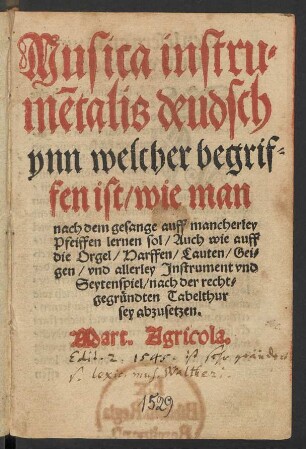 Musica instru-
mētalis deudsch
ynn welcher begrif-
fen ist/wie man
nach dem gesange auff mancherley
Pfeiffen lernen sol/Auch wie auff
die Orgel/Harffen/Lauten/Gei-
gen/vnd allerley Instrument vnd
Seytenspiel/nach der recht-
gegründten Tabelthur
sey abzusetzen.
Mart. Agricola.
Edit. 2. 1545. ist sehr
v. Lexic. mus. Walther.
1529